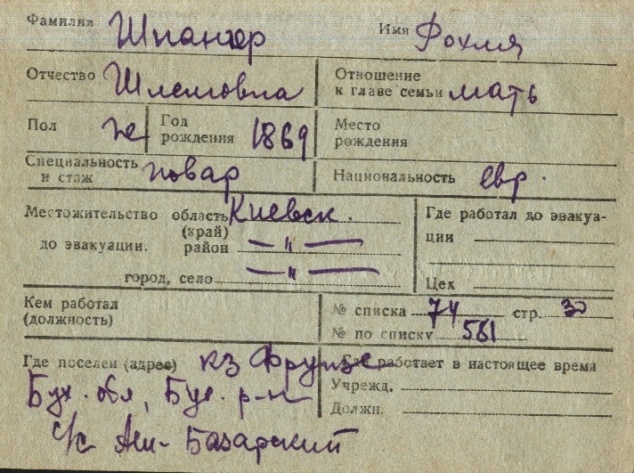 Фамилия Шпангер Имя Рохля
Отчество Шлемовна Отношение к главе семьи мать
Пол ж Год рождения 1869 Место рождения
Специальность и стаж повар Национальность евр.
Местожительство до эвакуации. область (край) Киевск.
район — " —
город, село — " —
Где работал до эвакуа-
ции
Цех
Кем работал (должность)
№ списка 74 стр. 30
№ по списку 561
Где поселен (адрес) кз Фрунзе
Бух. обл, Бух. р-н
с/с Базарский
Где работает в настоящее время
Учрежд.
Должн.